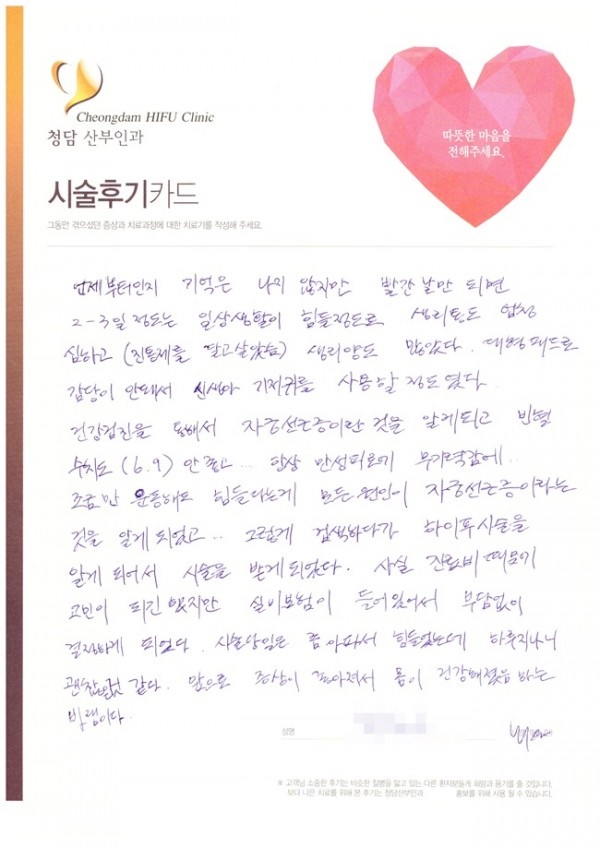 Cheongdam HIFU Clinic
청담 산부인과
따뜻한 마음을
전해주세요.
시술후기카드
그동안 겪으셨던 증상과 치료과정에 대한 치료기를 작성해 주세요.
언제부터인지 기억은 나지 않지만 빨간 날만 되면
2-3일 정도는 일상생활이 힘들정도로 생리통도 엄청
심하고 (진통제를 달고살았음) 생리양도 많았다. 대형패드로
감당이 안돼서 신생아 기저귀를 사용할 정도였다.
건강검진을 통해서 자궁선근증이란 것을 알게되고 빈혈
수치도 (6.9) 안좋고... 항상 만성피로에 무기력감에..
조금만 운동해도 힘들다는게 모든원인이 자궁선근증이라는
것을 알게 되었고.. 그렇게 검색하다가 하이푸시술을
알게 되어서 시술을 받게되었다. 사실 진료비 때문에
고민이 되긴 했지만 실비보험이 들어있어서 부담없이
결정하게 되었다. 시술당일은 좀 아파서 힘들었는데 하루지나니
괜찮았던 같다. 앞으로 증상이 좋아져서 몸이 건강해졌음 하는
바램이다.
성명
※ 고객님 소중한 후기는 비슷한 질병을 앓고 있는 다른 환자분들께 희망과 용기를 줄 것입니다.
보다 나은 치료를 위해 본 후기는 청담산부인과 홍보를 위해 사용 될 수 있습니다.